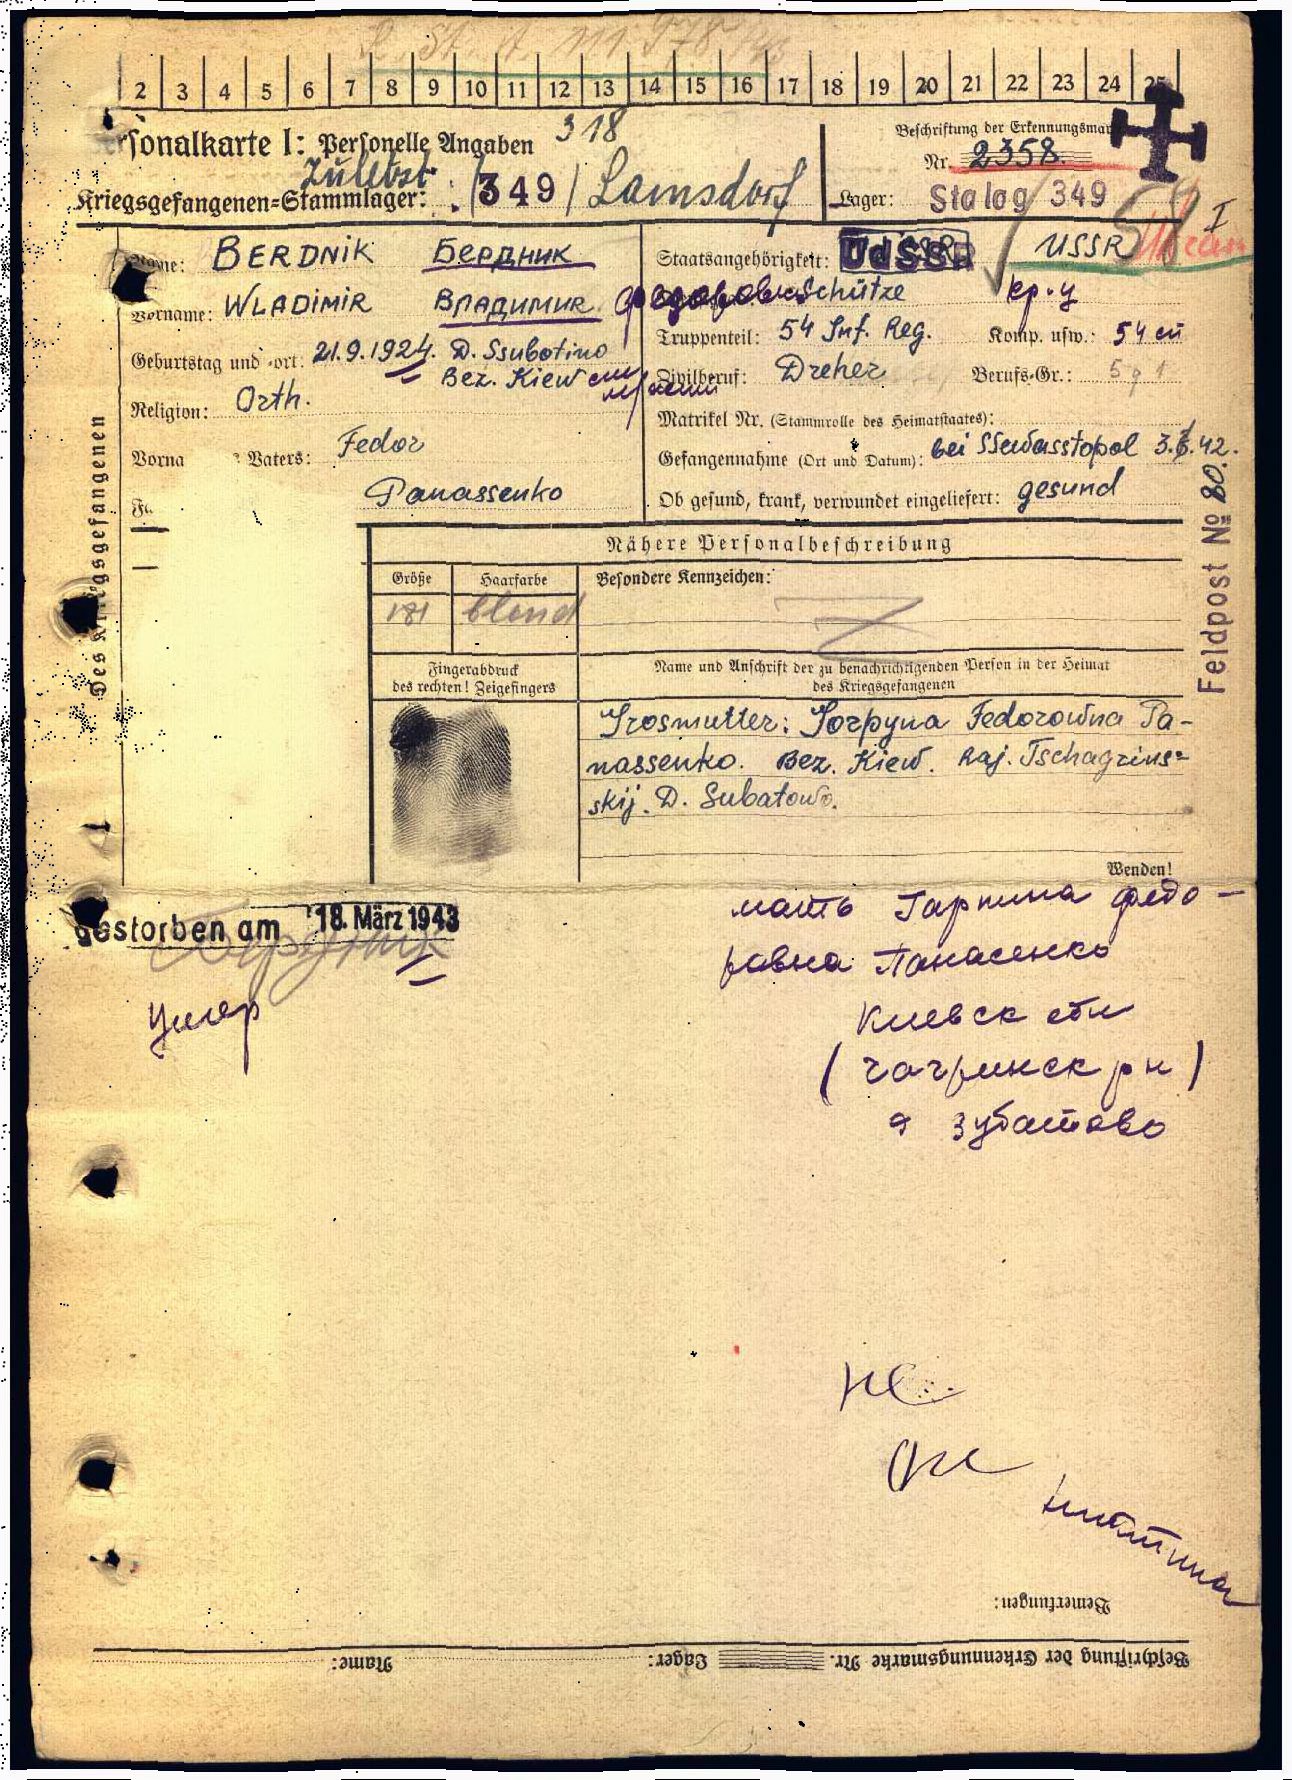 2 3 4 5 6 7 8 9 10 11 12 13 14 15 16 17 18 19 20 21 22 23 24 25
rsonalkarte I: Personelle Angaben 318
Beschriftung der Erkennungsmar
Nr. 2358.
Zuletzt
Kriegsgefangenen=Stammlager: 349 / Lamsdorf
Lager: Stalag 349
Name: BERDNIK Бердник
Staatsangehörigkeit: UdSSR USSR
I
Vorname: WLADIMIR Владимир Федорович
Schütze кр-ц
Geburtstag und -ort: 21.9.1924. D. Ssubotino
Bez. Kiew
Truppenteil: 54 Inf. Reg. Komp. usw.: 54 сп
Zivilberuf: Dreher Berufs-Gr.:
Religion: Orth.
Matrikel Nr. (Stammrolle des Heimatstaates):
Vorna Vaters: Fedor
Gefangennahme (Ort und Datum): bei Ssewasstopol 3.7.42.
Fa Panassenko
Ob gesund, krank, verwundet eingeliefert: gesund
Des Kriegsgefangenen
Feldpost № 80.
Nähere Personalbeschreibung
Größe Haarfarbe Besondere Kennzeichen:
181 blond
Fingerabdruck
des rechten! Zeigefingers
Name und Anschrift der zu benachrichtigenden Person in der Heimat
des Kriegsgefangenen
Grosmutter: Gorpyna Fedorowna Pa-
nassenko. Bez. Kiew. Raj. Tschagrins=
skij. D. Subatowo.
Wenden!
gestorben am 18. März 1943
Умер
мать Гарпина Федо-
ровна Панасенко
Киевск обл
(чагринск рн)
д Зубатово
Bemerkungen:
Beschriftung der Erkennungsmarke Nr. Lager: Name: